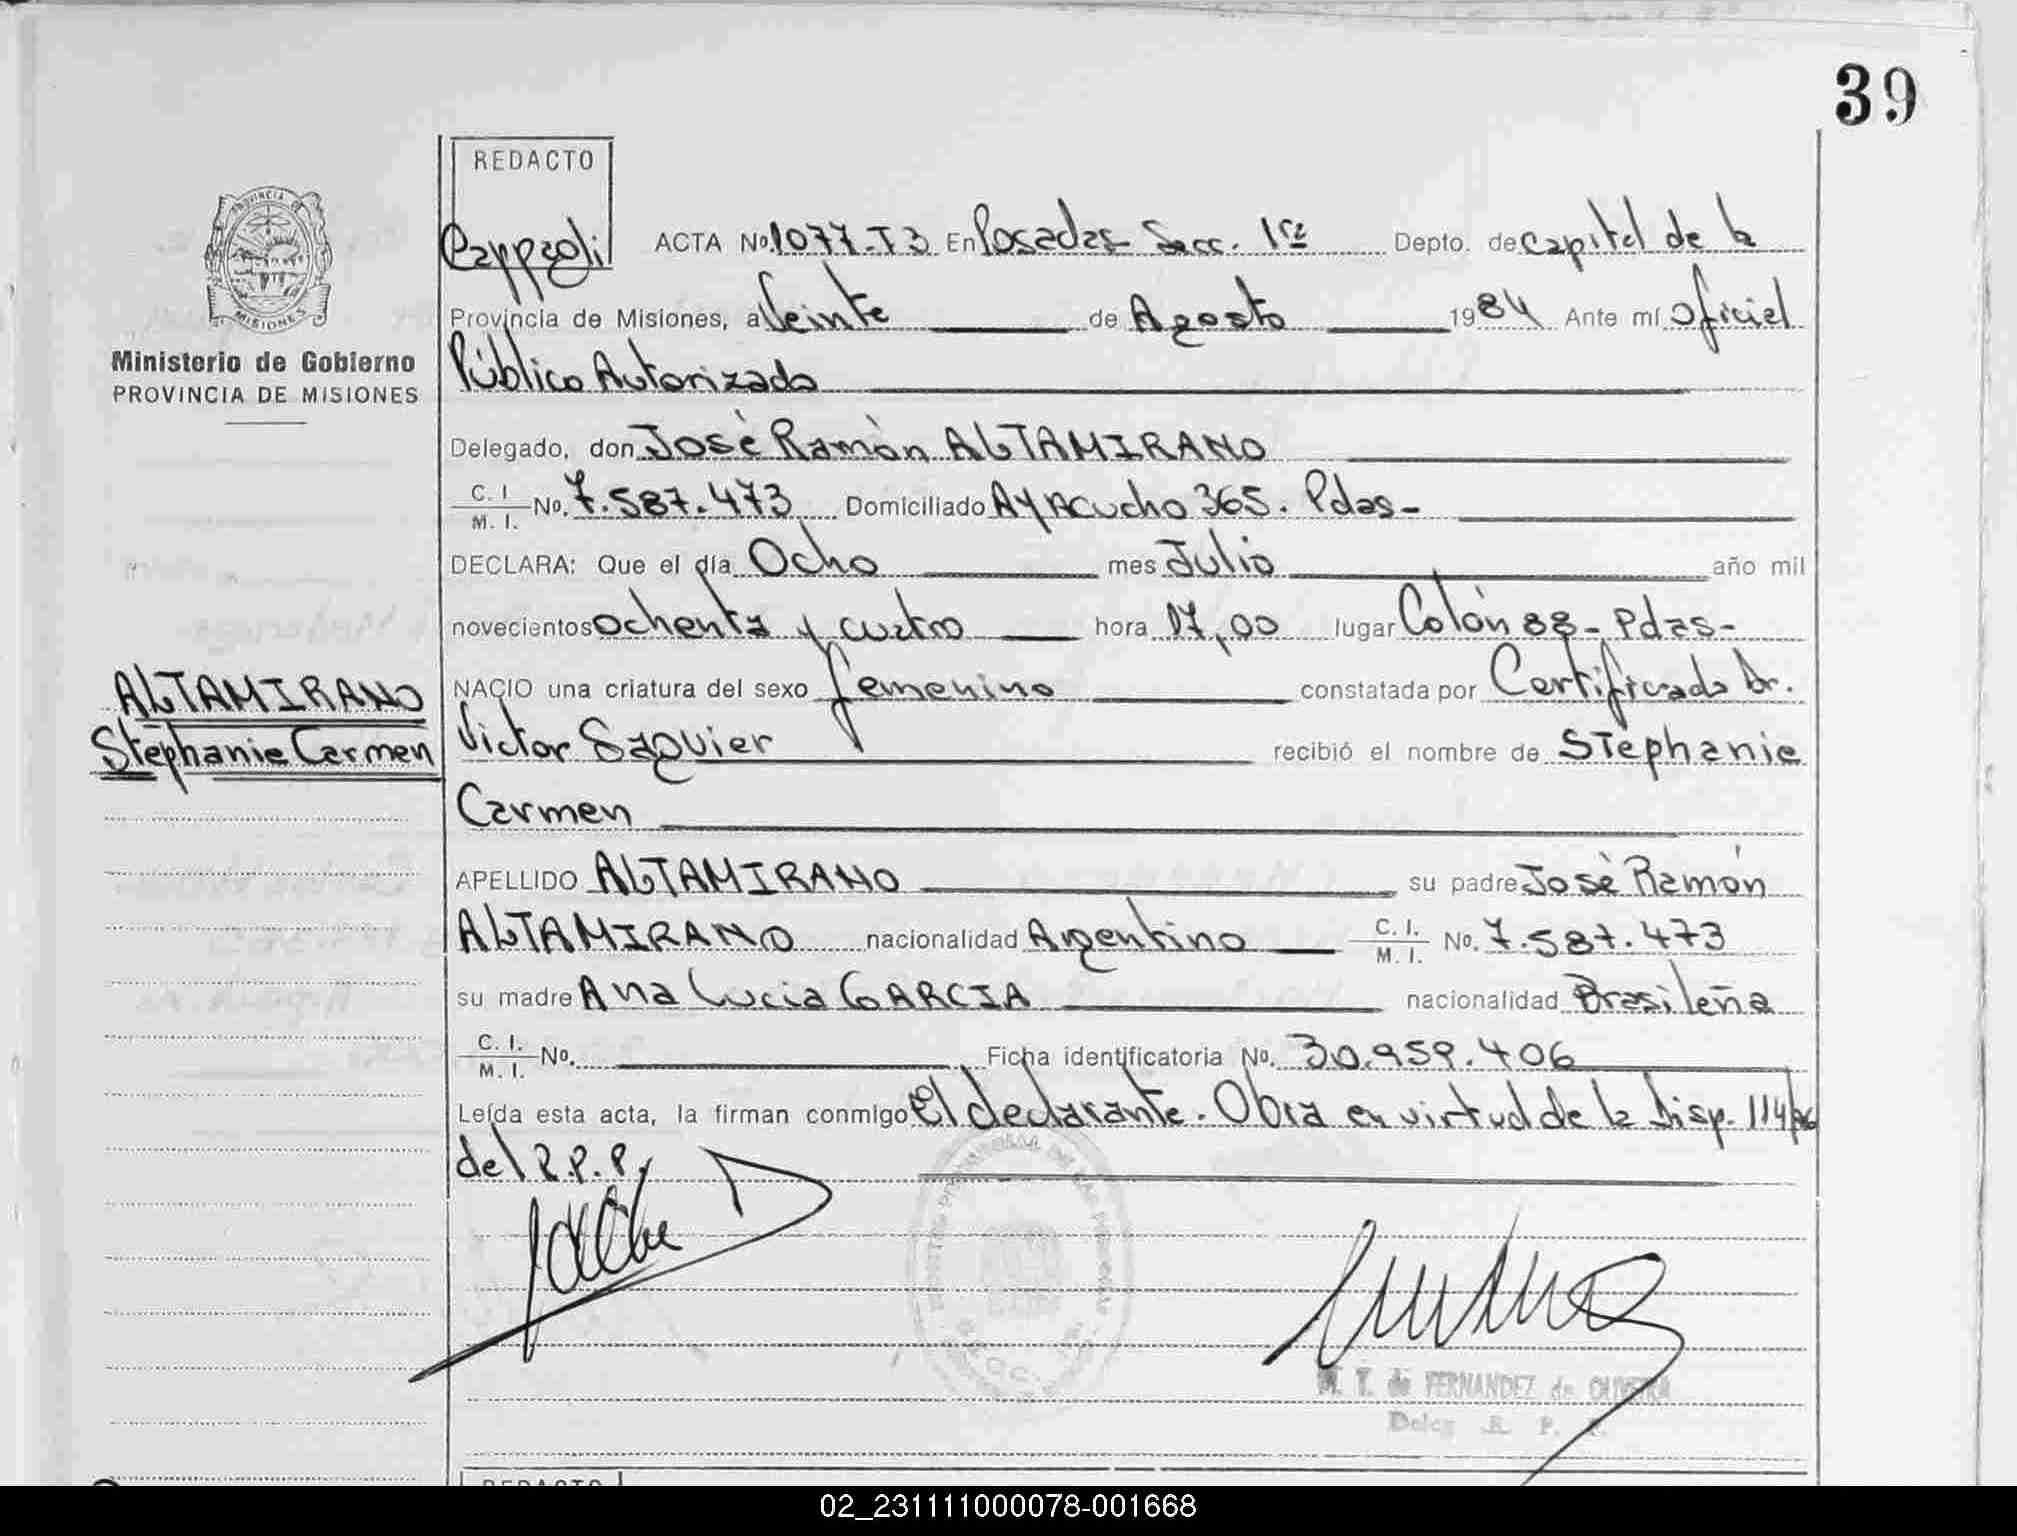 39
REDACTO
Cappaoli ACTA No. 1077-T3 En Posadas Secc. 1ra Depto. de Capital de la
Provincia de Misiones, a Veinte de Agosto 1984 Ante mí Oficial
Público Autorizado
Delegado, don José Ramón ALTAMIRANO
C. I. / M. I. No. 7.587.473 Domiciliado Ayacucho 365. Pdas-
DECLARA: Que el día Ocho mes Julio año mil
novecientos ochenta y cuatro hora 17,00 lugar Colón 88- Pdas-
NACIO una criatura del sexo femenino constatada por Certificado Dr.
Victor Saguier recibió el nombre de Stephanie
Carmen
APELLIDO ALTAMIRANO su padre José Ramón
ALTAMIRANO nacionalidad Argentino C. I. / M. I. No. 7.587.473
su madre Ana Lucia GARCIA nacionalidad Brasileña
C. I. / M. I. No. Ficha identificatoria No. 30.959.406
Leída esta acta, la firman conmigo El declarante. Obra en virtud de la Disp. 114/
del R.P.P.
M. T. de FERNANDEZ de OLIVEIRA
Deleg R. P.
PROVINCIA DE
MISIONES
Ministerio de Gobierno
PROVINCIA DE MISIONES
ALTAMIRANO
Stephanie Carmen
REDACTO
02_231111000078-001668